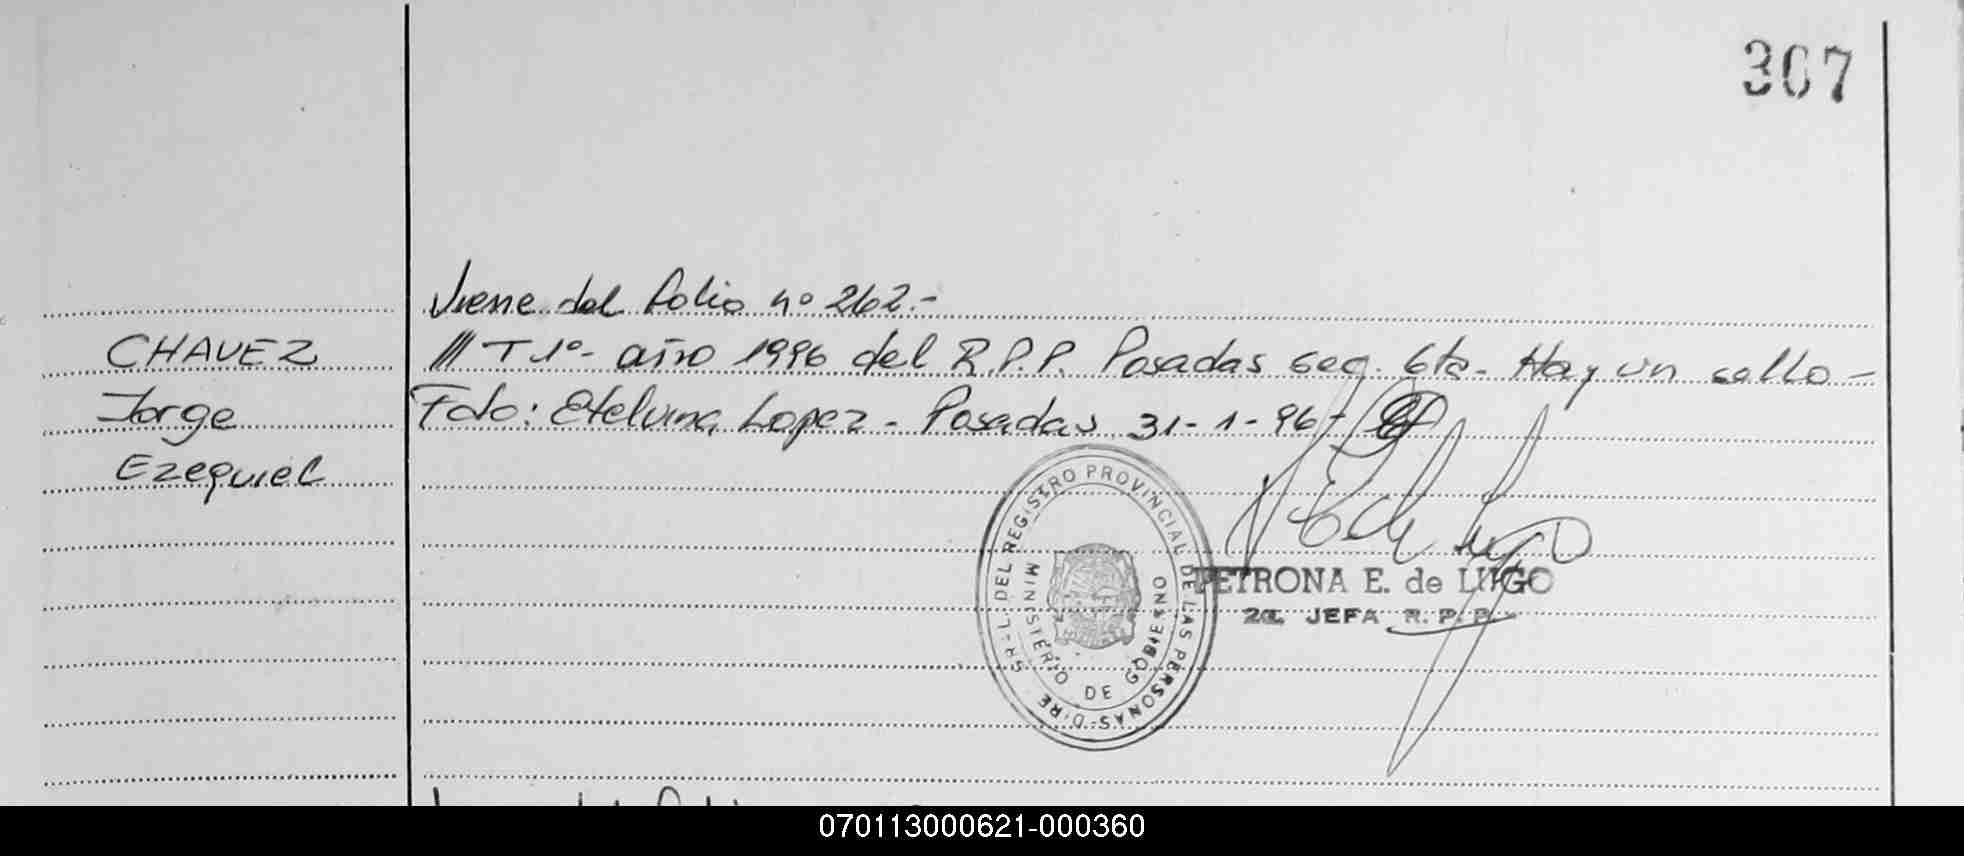 307
Viene del folio nº 262.-
CHAVEZ
Jorge
Ezequiel
/// T 1º- año 1996 del R.P.P. Posadas sec. 6ta. Hay un sello -
Fdo: Etelvina Lopez - Posadas 31-1-96-
REGISTRO PROVINCIAL DE LAS PERSONAS-DIRE
MINISTERIO DE GOBIERNO
PETRONA E. de LUGO
2a. JEFA R.P.P.
070113000621-000360